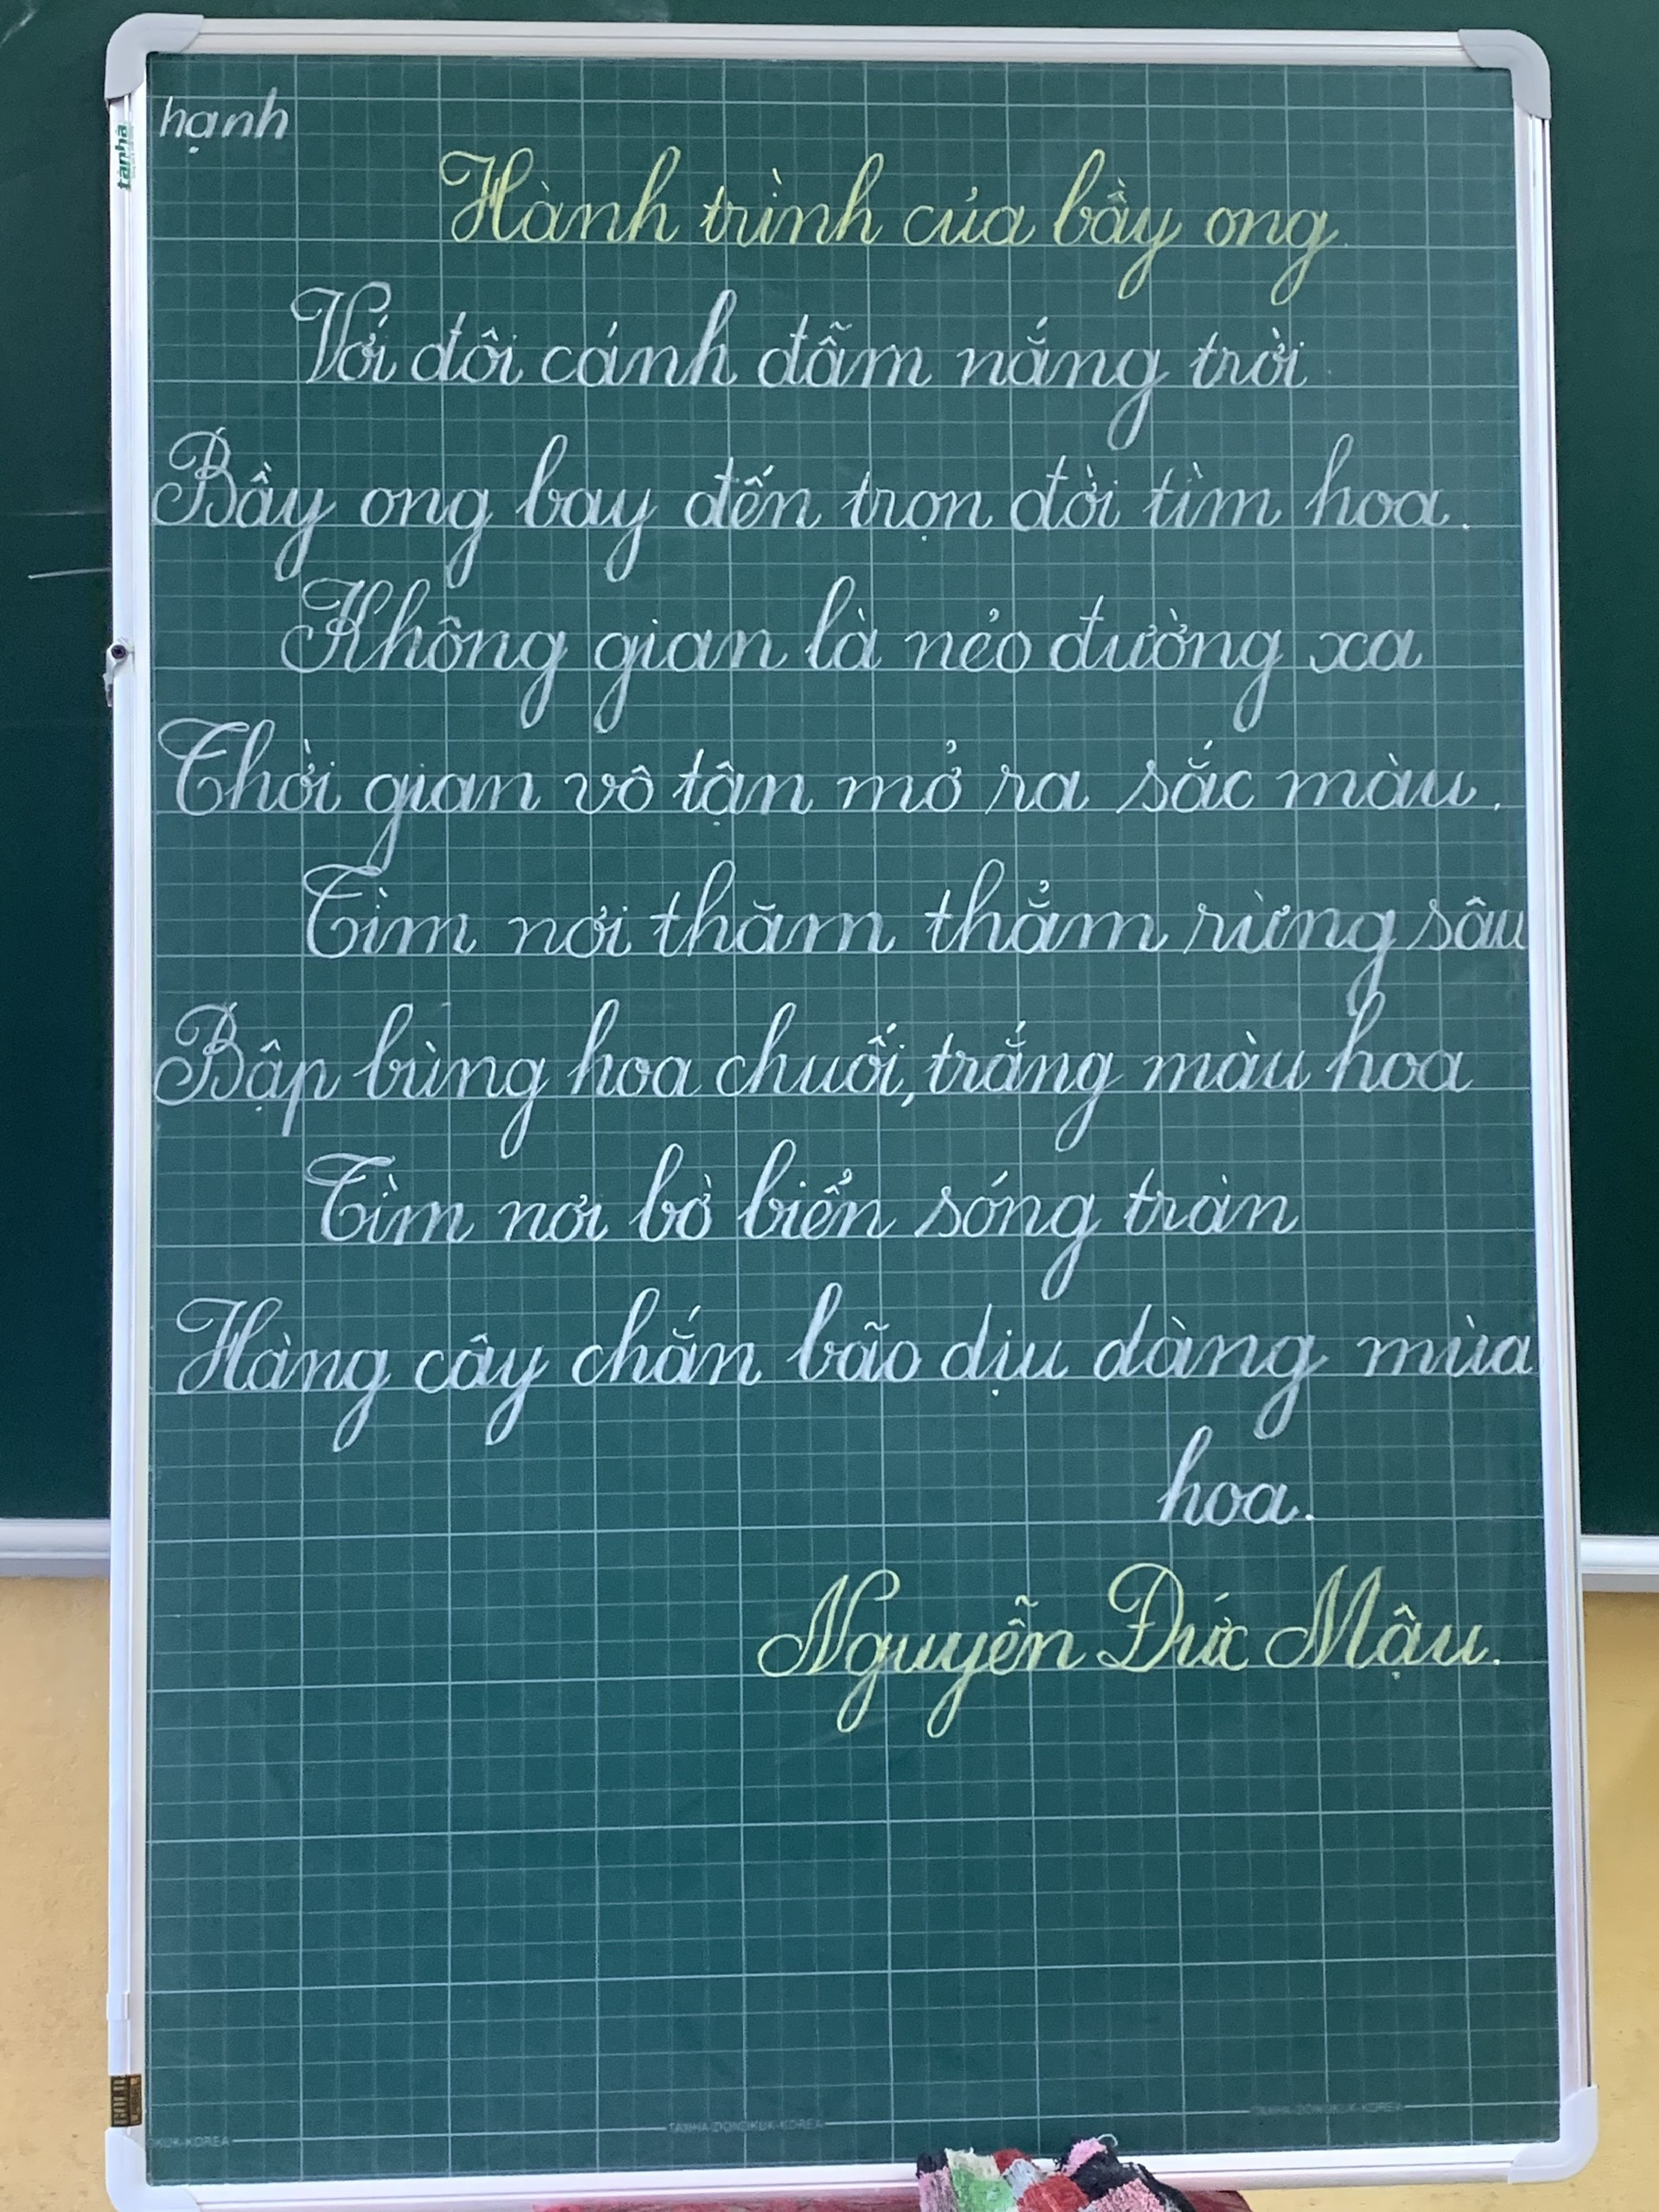 hạnh
tanhà
Hành trình của bầy ong
Với đôi cánh đẫm nắng trời
Bầy ong bay đến trọn đời tìm hoa.
Không gian là nẻo đường xa
Thời gian vô tận mở ra sắc màu.
Tìm nơi thăm thẳm rừng sâu
Bập bùng hoa chuối, trắng màu hoa
Tìm nơi bờ biển sóng tràn
Hàng cây chắn bão dịu dàng mùa
hoa.
Nguyễn Đức Mậu.
GOLD
KUK-KOREA
TANHA-DONGKUK-KOREA
TANHA-DONGKUK-KOREA